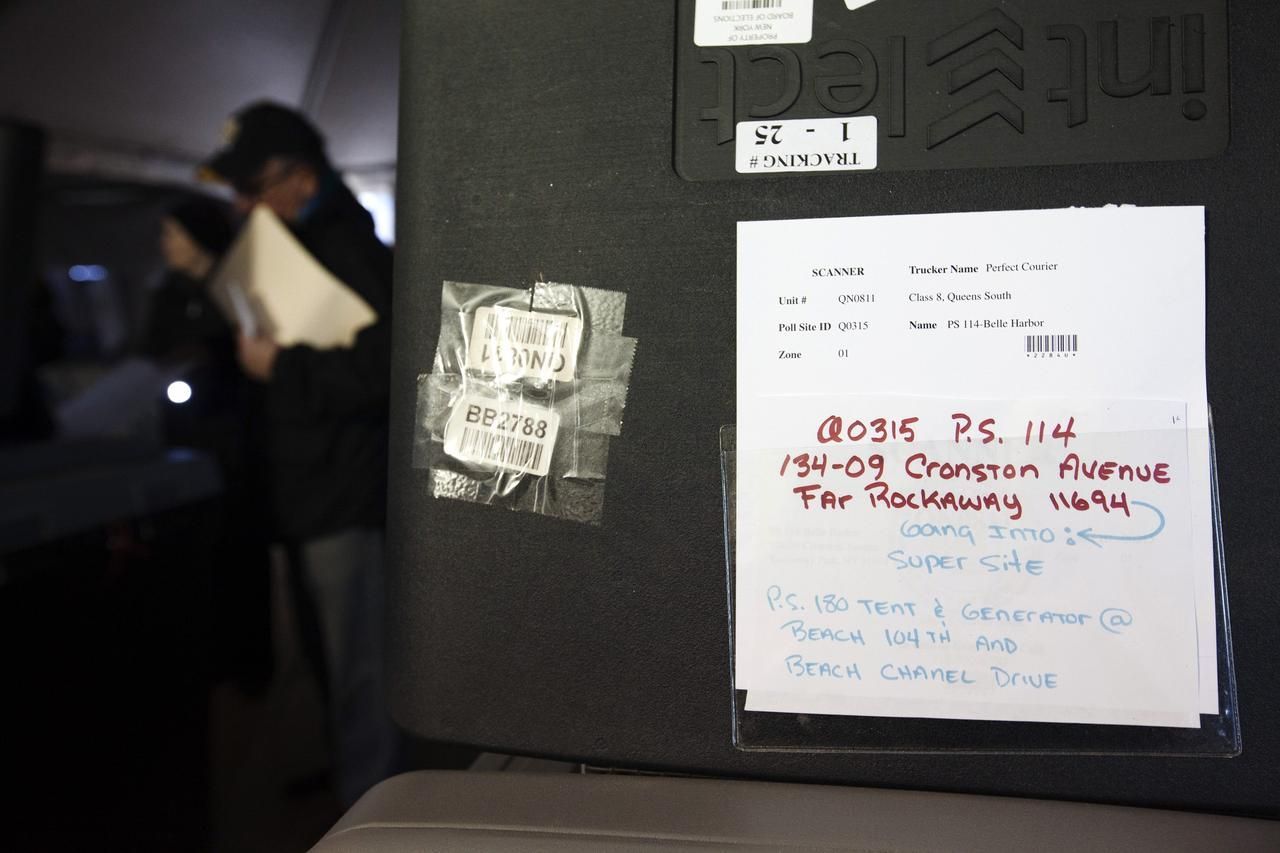 PROPERTY OF
NEW YORK
BOARD OF ELECTIONS
intellect
TRACKING #
1 - 25
QN0811
BB2788
SCANNER
Trucker Name Perfect Courier
Unit # QN0811
Class 8, Queens South
Poll Site ID Q0315
Name PS 114-Belle Harbor
Zone 01
*2284U*
Q0315 P.S. 114
134-09 Cronston Avenue
Far Rockaway 11694
Going Into:
Super Site
P.S. 180 Tent & Generator @
Beach 104th and
Beach Chanel Drive